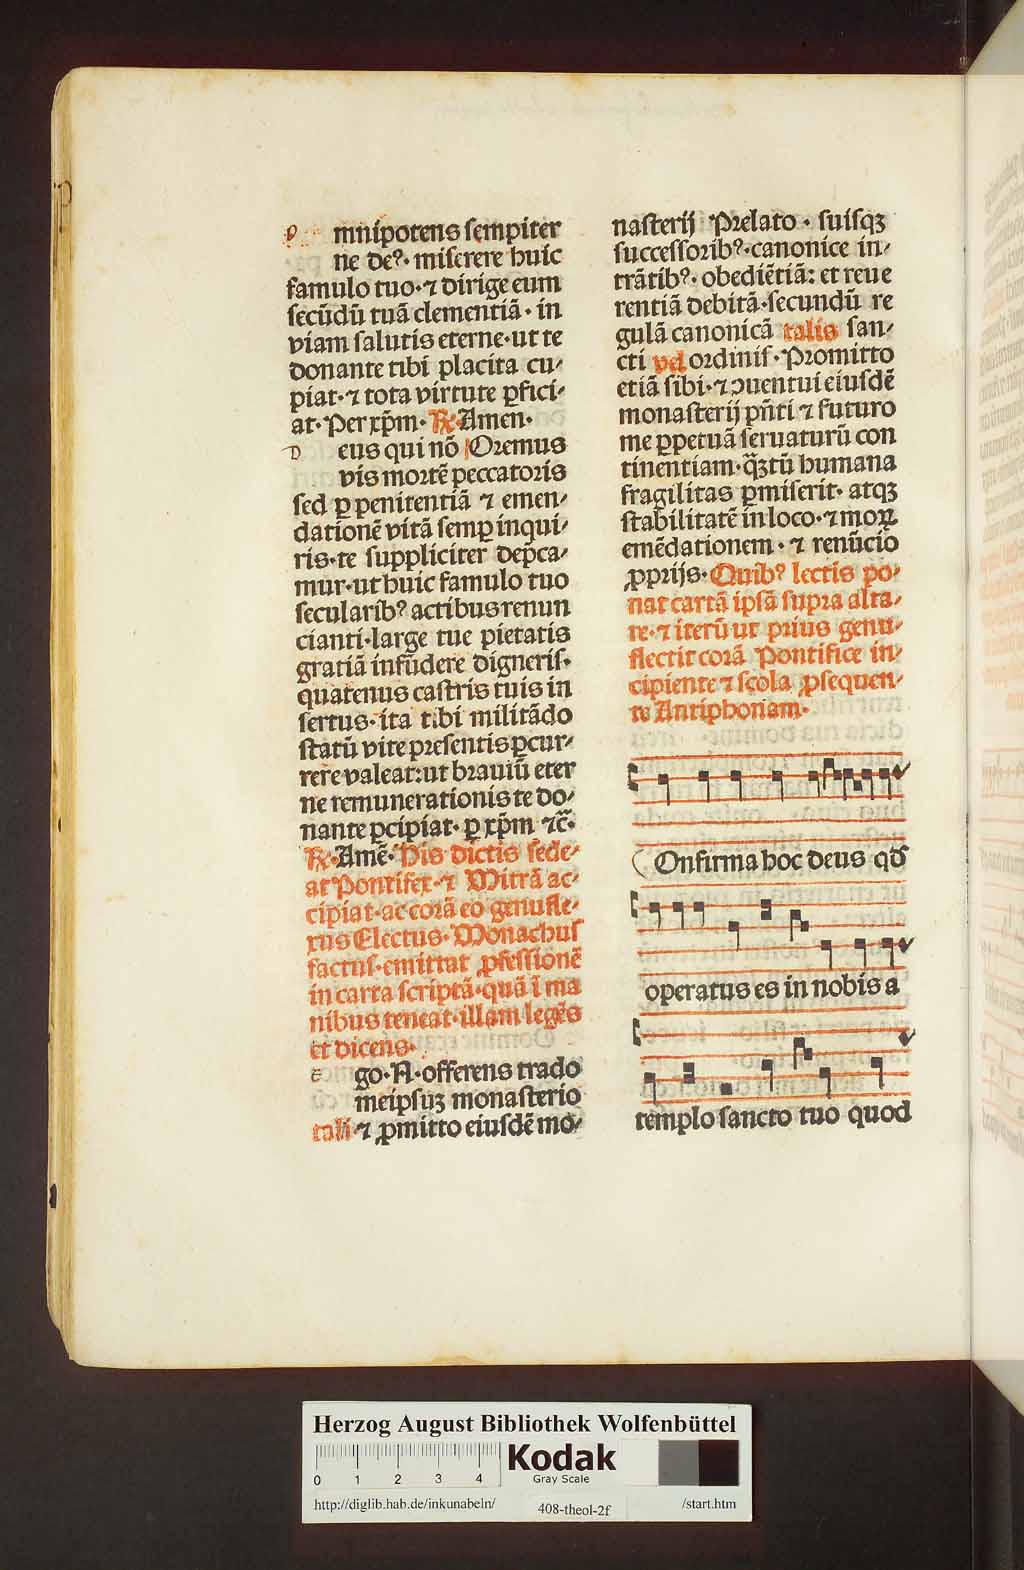 o mnipotens sempiter
ne deꝰ· miserere huic
famulo tuo·⁊ dirige eum
secūdū tuā clementiā· in
viam salutis eterne·ut te
donante tibi placita cu⸗
piat·⁊ tota virtute ꝑfici⸗
at·Per xp̄m·℞·Amen·
D eus qui nō Oremus
vis mortē peccatoris
sed ꝑ penitentiā ⁊ emen⸗
dationē vitā semꝑ inqui⸗
ris·te suppliciter dep̄ca⸗
mur·ut huic famulo tuo
secularibꝰ actibus renun
cianti·large tue pietatis
gratiā infūdere digneris·
quatenus castris tuis in
sertus·ita tibi militādo
statū vite presentis ꝑcur⸗
rere valeat:ut brauiū eter
ne remunerationis te do⸗
nante ꝑcipiat· ꝑ xp̄m ⁊c̄·
℞·Amē·His dictis sede⸗
at Pontifex·⁊ Mitrā ac⸗
cipiat·ac corā eo genufle⸗
xus Electus·Monachus
factus·emittat ꝓfessionē
in carta scriptā·quā ī ma
nibus teneat·illam legēs
et dicens·
E go·N·offerens trado
meipsuꝫ monasterio
tali ⁊ ꝓmitto eiusdē mo⸗
nasterij Prelato· suisqꝫ
successoribꝰ·canonice in⸗
trātibꝰ· obediētiā: et reue
rentiā debitā·secundū re
gulā canonicā talis san⸗
cti vel ordinis·Promitto
etiā sibi·⁊ ↄuentui eiusdē
monasterij pn̄ti ⁊ futuro
me ꝑpetuā seruaturū con
tinentiam·q̄ꝫtū humana
fragilitas ꝑmiserit· atqꝫ
stabilitatē in loco·⁊ moꝝ
emēdationem·⁊ renūcio
ꝓprijs·Quibꝰ lectis po⸗
nat cartā ipsā supra alta⸗
re·⁊ iterū ut prius genu⸗
flectit corā Pontifice in⸗
cipiente ⁊ scola ꝓsequen⸗
te Antiphonam·
C Onfirma hoc deus qd̄
operatus es in nobis a
templo sancto tuo quod
Herzog August Bibliothek Wolfenbüttel
0 1 2 3 4
Kodak
Gray Scale
http://diglib.hab.de/inkunabeln/ 408-theol-2f /start.htm